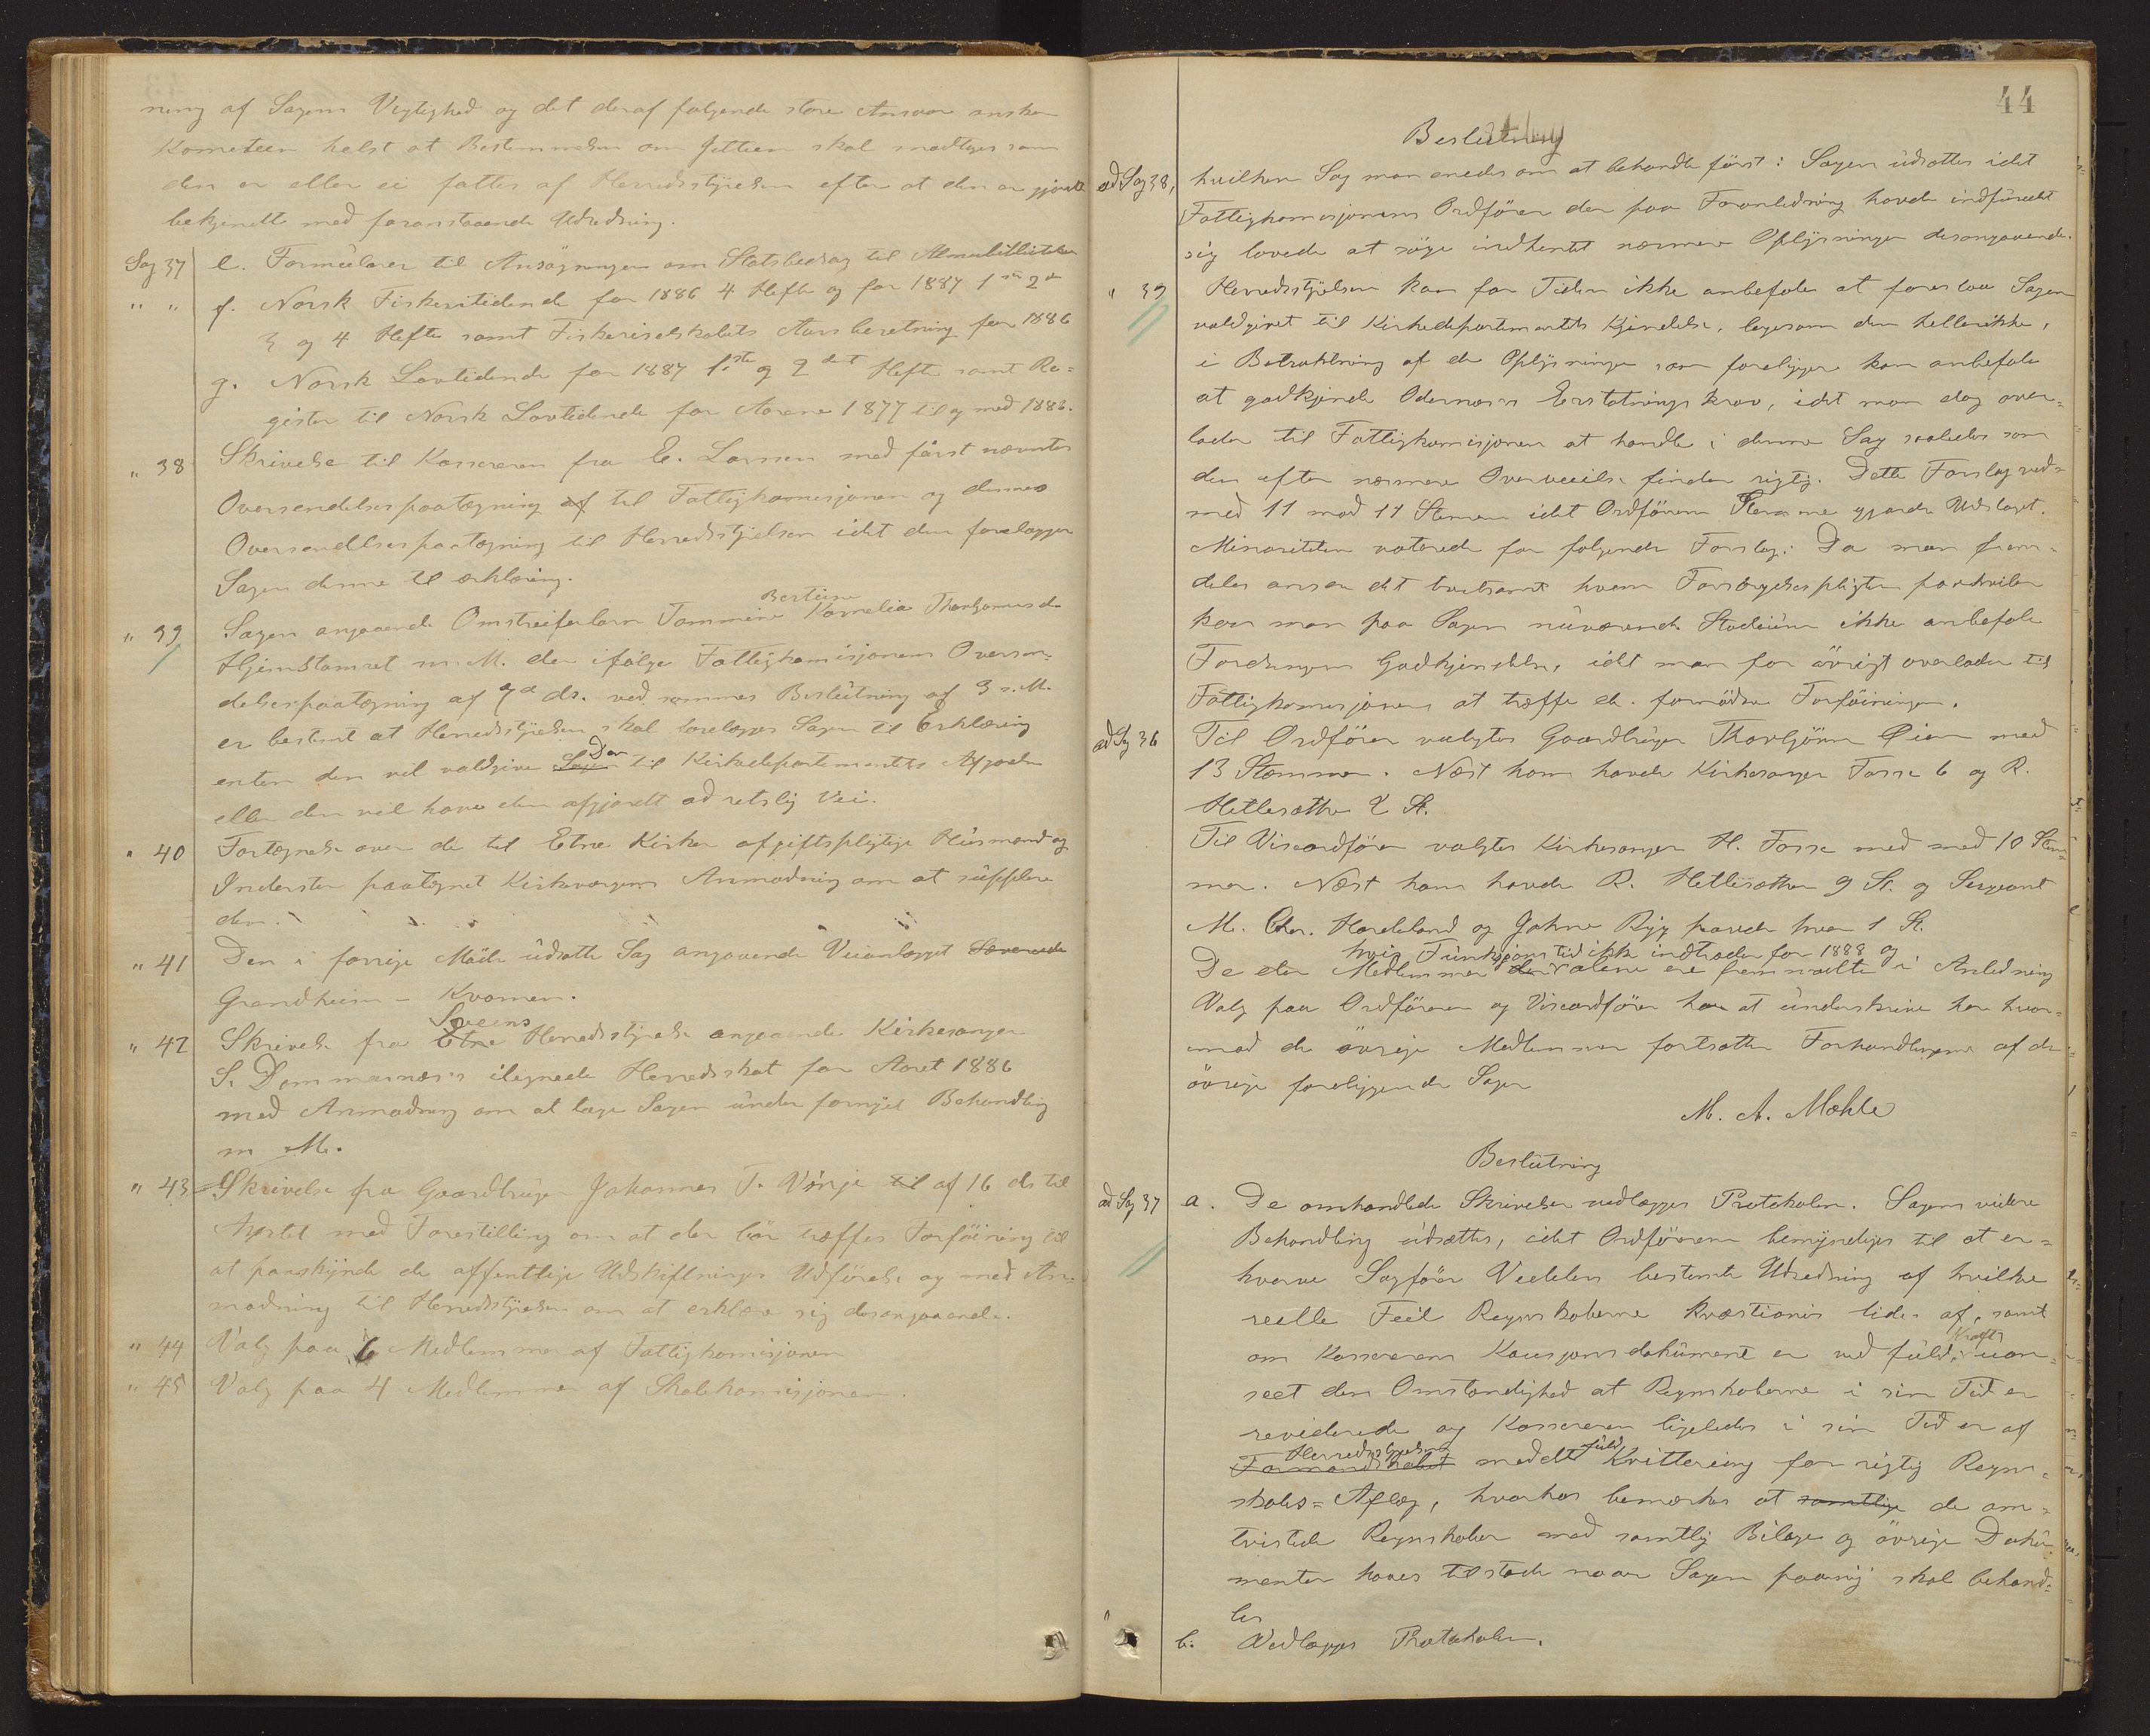 ning af Sagens Vigtighed og det deraf følgende store Ansvar ønsker
Komiteen helst at Bestemmelsen om Jettien skal modtages som
den er eller ei fattes af Herredsstyrelsen efter at den er gjordt
bekjendt med foranstaaende Udredning.
Sag 37 e. Formularer til Ansøgninger om Statsbidrag til Almubibliotheker
" " f. Norsk Fiskeritidende for 1886 4 Hefte og for 1887 1ste 2det
3 og 4 Hefte samt Fiskeriselskabets Aarsberetning for 1886
g. Norsk Lovtidende for 1887 1ste og 2det Hefte samt Re=
gister til Norsk Lovtidende for Aarene 1877 til og med 1886.
" 38 Skrivelse til Kassereren fra E. Larsen med först nævntes
Oversendelsespaategning af til Fattigkomisjonen og dennes
Oversendelsespaategning til Herredsstyrelsen idet den forelægger
Sagen denne til erklæring.
" 39 Sagen angaaende Omstreiferbarn Tommine Bertine Kornelia Thorbjørnsd
Hjemstamret m. M. der ifølge Fattigkomisjonens Oversen=
delsespaategning af 7de ds. ved sammes Beslutning af 3 s. M.
er bestemt at Herredsstyrelsen skal forelægges Sagen til Erklæring
enten den vil voldgive Sagen Den til Kirkedepartementets Afgjørelse
eller den vil have den afgjordt ad retslig Vei.
" 40 Fortegnelse over de til Etne Kirke afgiftspligtige Husmænd og
Inderster paategnet Kirkevergens Anmodning om at supplere
den.
" 41 Den i forrige Möde udsatte Sag angaaende Veianlægget Søverude
Grandheim - Kvamen.
" 42 Skrivelse fra Etne Sveens Herredsstyrelse angaaende Kirkesanger
S. Dommarnæs's ilignede Herredsskat for Aaret 1886
med Anmodning om at tage Sagen under fornyet Behandling
m M.
" 43 Skrivelse fra Gaardbruger Johannes T. Vinje til af 16 ds til
Amtet med Forestilling om at der bör træffes Forföining til
at paaskynde de offentlige Udskiftningers Udförelse og med An=
modning til Herredsstyrelsen om at erklære sig desangaaende.
" 44 Valg paa 6 Medlemmer af Fattigkomisjonen
" 45 Valg paa 4 Medlemmer af Skolekomisjonen.
44
Beslutning
ad Sag 38, hvilken Sag man enedes om at behandle först: Sagen udsattes idet
Fattigkomisjonens Ordförer der paa Foranledning havde indfundet
sig lovede at söge indhentet nærmere Oplysninger desangaaende.
" 39 Herredsstyrelsen kan for Tiden ikke anbefale at foreslaa Sagen
voldgivet til Kirkedepartementets Kjendelse, ligesom den hellerikke,
i Betragtning af de Oplysninger som foreligger kan anbefale
at godkjende Odernæs's Erstatningskrav, idet man dog over=
lader til Fattigkomisjonen at handle i denne Sag saaledes som
den efter nærmere Overveielse finder rigtig. Dette Forslag ved=
med 11 mod 11 Stemmer idet Ordförerens Stemme gjorde Udslaget.
Minoriteten voterede for følgende Forslag: Da man frem=
deles anser det tvilsomt hvem Forsörgelsespligten paahviler
kan man paa Sagens nuværende Stadium ikke anbefale
Fordringens Godkjendelse, idet man for övrigt overlader til
Fattigkomisjonen at træffe de fornödne Forföininger.
ad Sag 36 Til Ordförer valgtes Gaardbruger Thorbjörn Øien med
13 Stemmer. Næst ham havde Kirkesanger Fosse 6 og R.
Hetlesæther 2 St.
Til Viceordförer valgtes Kirkesanger H. Fosse med med 10 Stem=
mer. Næst ham havde R. Hetlesæther 9 St. og Sergeant
M. Chr. Hardeland og Johne Ryg havde hver 1 St.
De der Medlemmer hvis Funksjonstid ikke indtræder for 1888 og der alene ere fremmødte i Anledning
Valg paa Ordförer og Viceordförer har at underskrive her hvor=
imod de övrige Medlemmer fortsætter Forhandlingerne af de
övrige foreliggende Sager
M. A. Mæhle
Beslutning
ad Sag 37 a. De omhandlede Skrivelser vedlægges Protokolen. Sagens videre
Behandling udsættes, idet Ordföreren bemyndiges til at er=
hverve Sagförer Vedelers bestemte Udredning af hvilke
reelle Feil Regnskaberne kvæstionis lider af, samt
om Kassererens Kausjonsdokument er ved fuld Kraft uan=
seet den Omstændighed at Regnskaberne i sin Tid er
reviderede og Kassereren ligeledes i sin Tid er af
Formandskabet Herredsstyrelsen meddelt fuld Kvittering for rigtig Regn=
skabs=Aflæg, hvorhos bemærkes at samtlige de om=
tvistede Regnskaber med samtlig Bilage og övrige Doku=
menter haves tilstede naar Sagen paany skal behand=
les
" b. Vedlægges Protokolen.